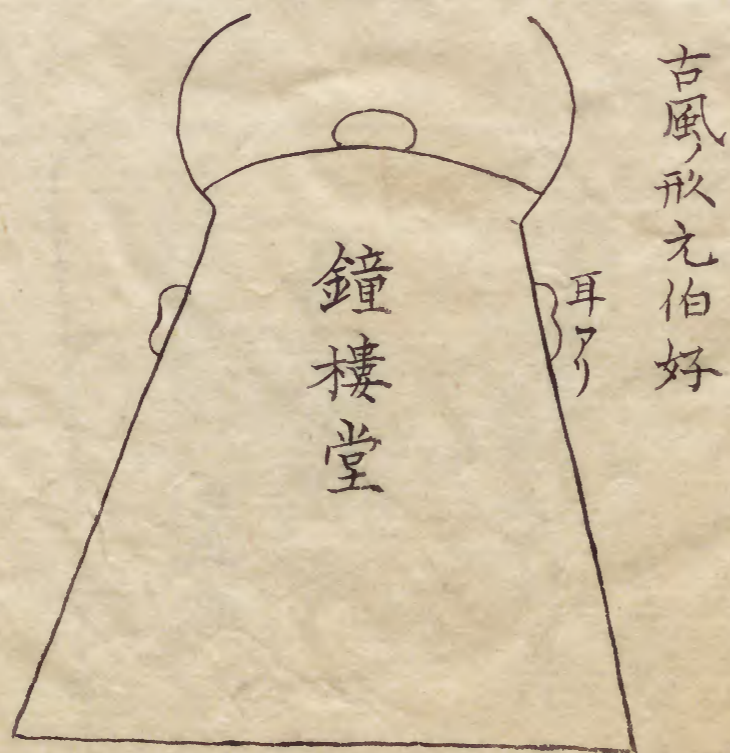 古風ノ形元伯好
耳アリ
鐘樓堂